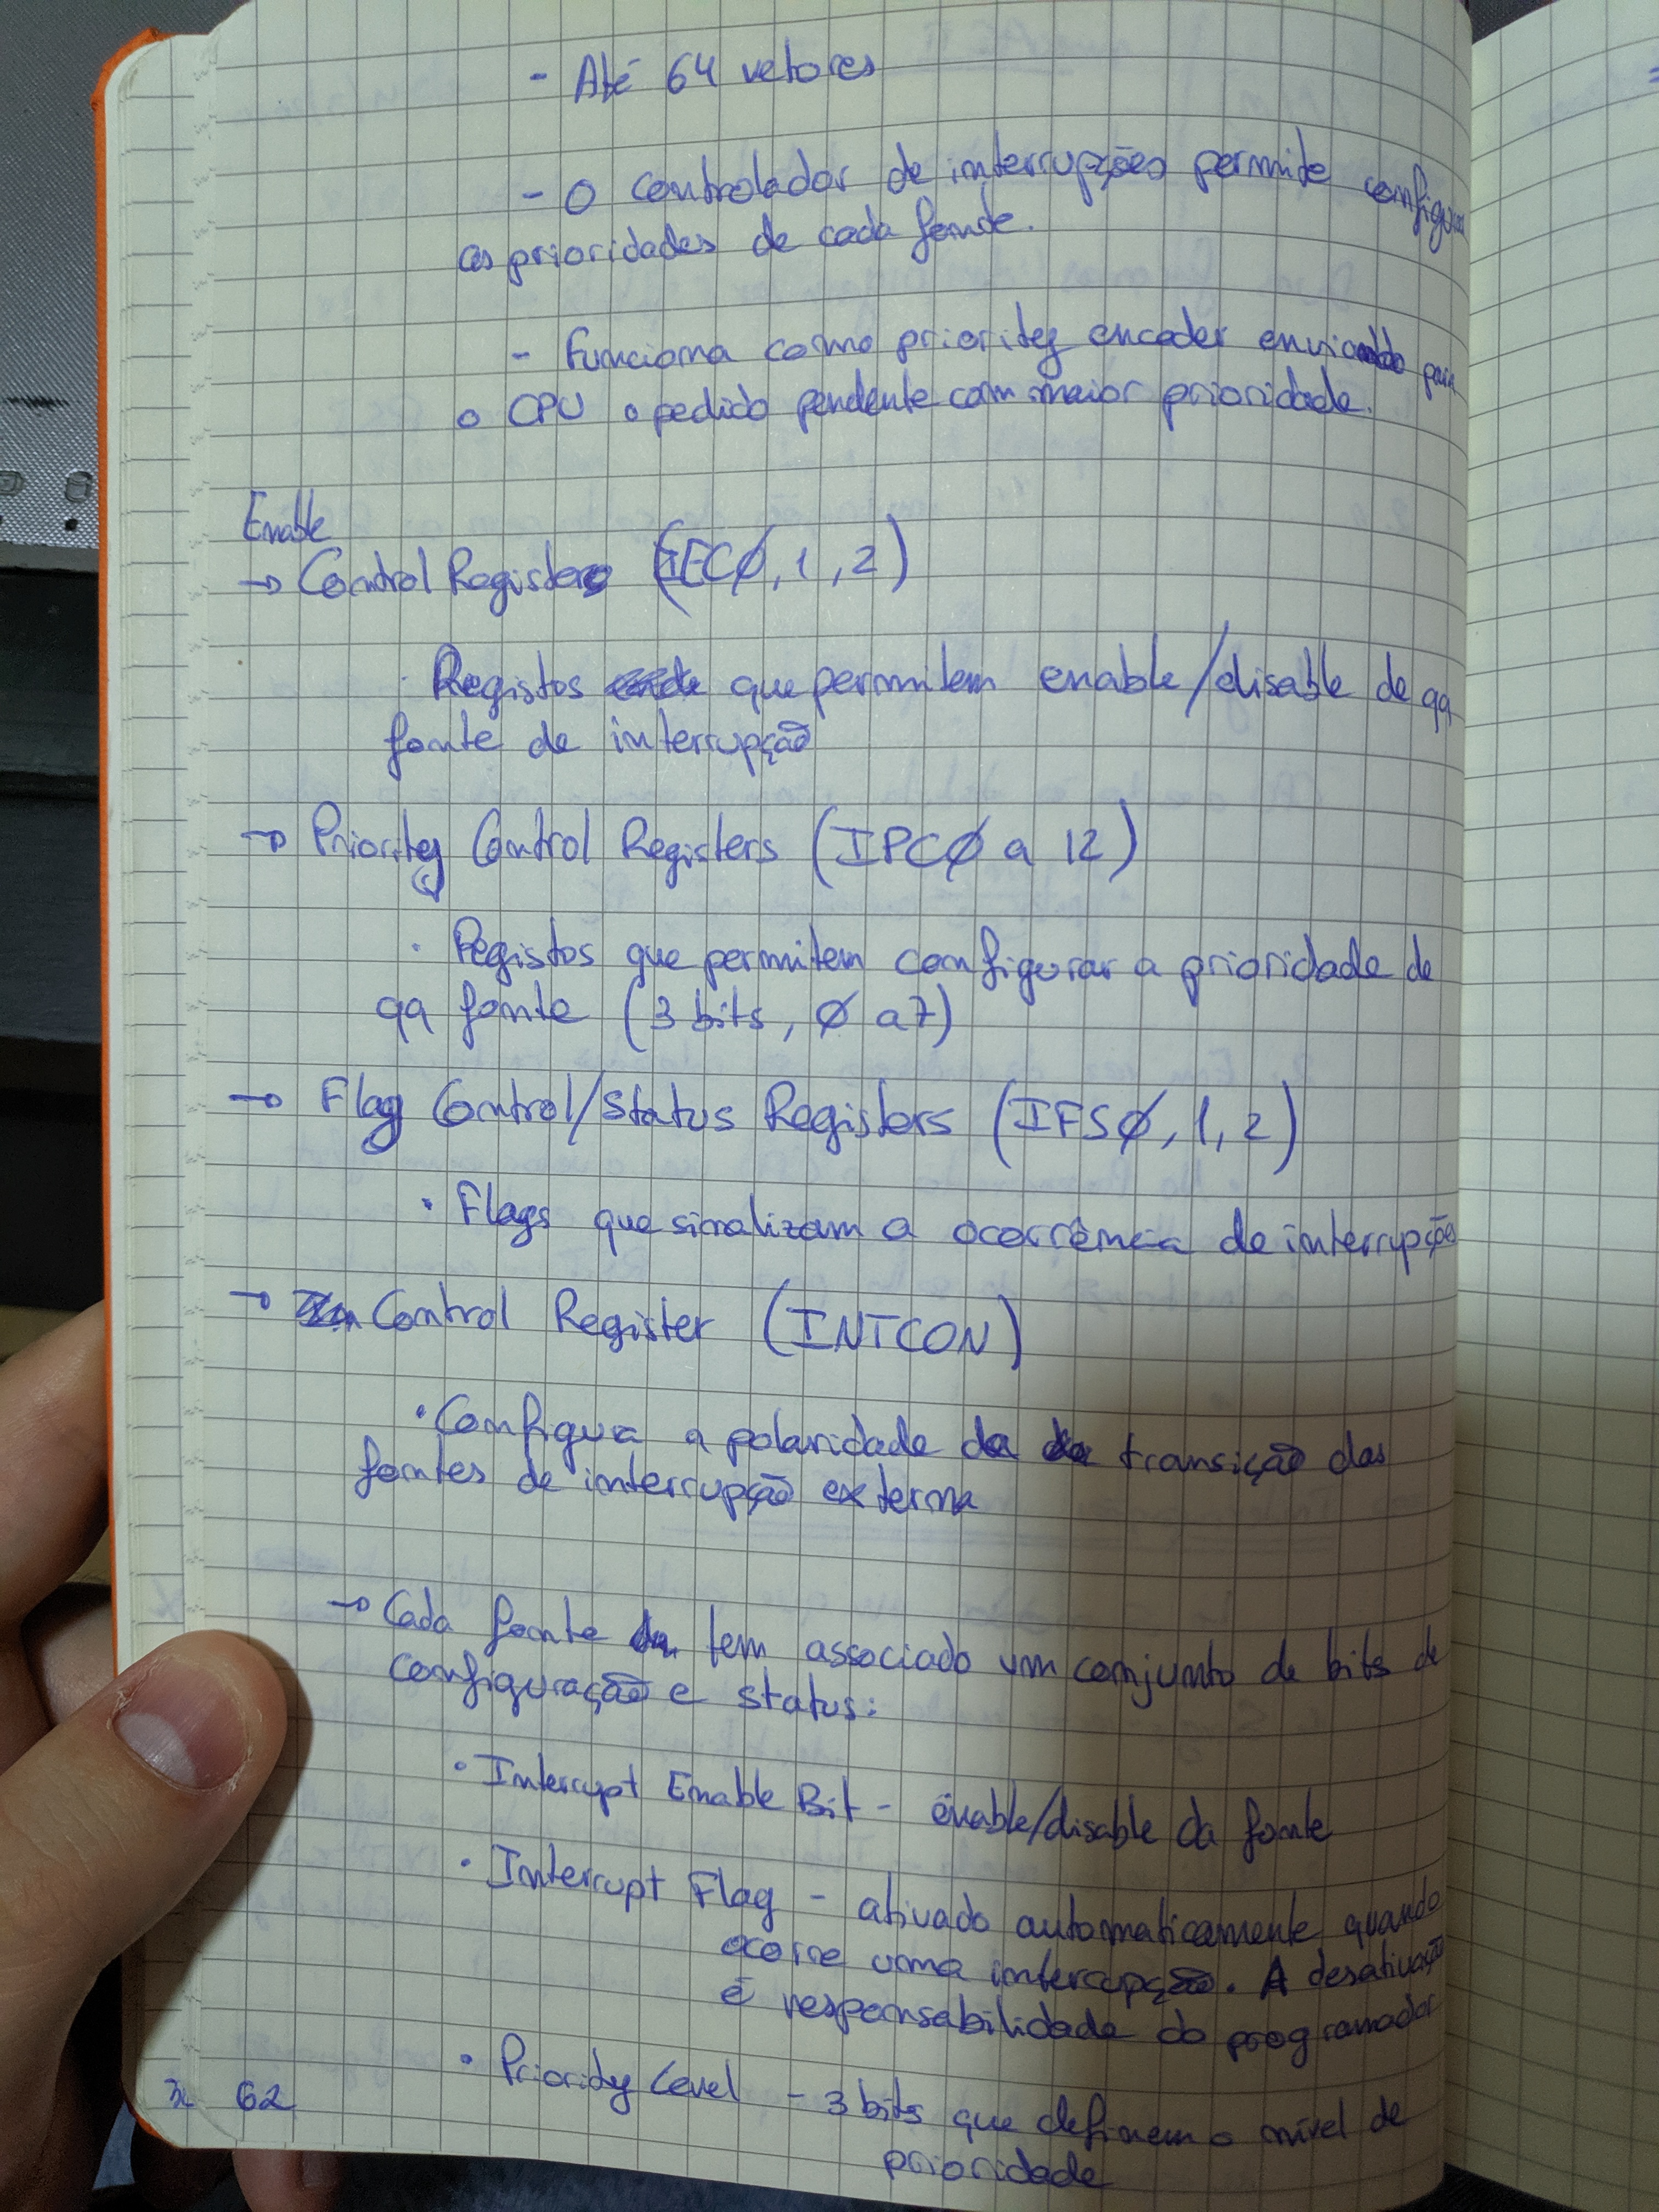 - Até 64 vetores
- O controlador de interrupções permite configurar
as prioridades de cada fonte.
- Funciona como priority encoder enviando para
o CPU o pedido pendente com maior prioridade.
Enable
→ Control Registers (IECØ, 1, 2)
· Registos que permitem enable/disable de qq
fonte de interrupção
→ Priority Control Registers (IPCØ a 12)
· Registos que permitem configurar a prioridade de
qq fonte (3 bits, Ø a 7)
→ Flag Control/Status Registers (IFSØ, 1, 2)
· Flags que sinalizam a ocorrência de interrupções
→ Control Register (INTCON)
· Configura a polaridade da transição das
fontes de interrupção externa
→ Cada fonte tem associado um conjunto de bits de
configuração e status:
· Interrupt Enable Bit - enable/disable da fonte
· Interrupt Flag - ativado automaticamente quando
ocorre uma interrupção. A desativação
é responsabilidade do programador
· Priority Level - 3 bits que definem o nível de
prioridade
62